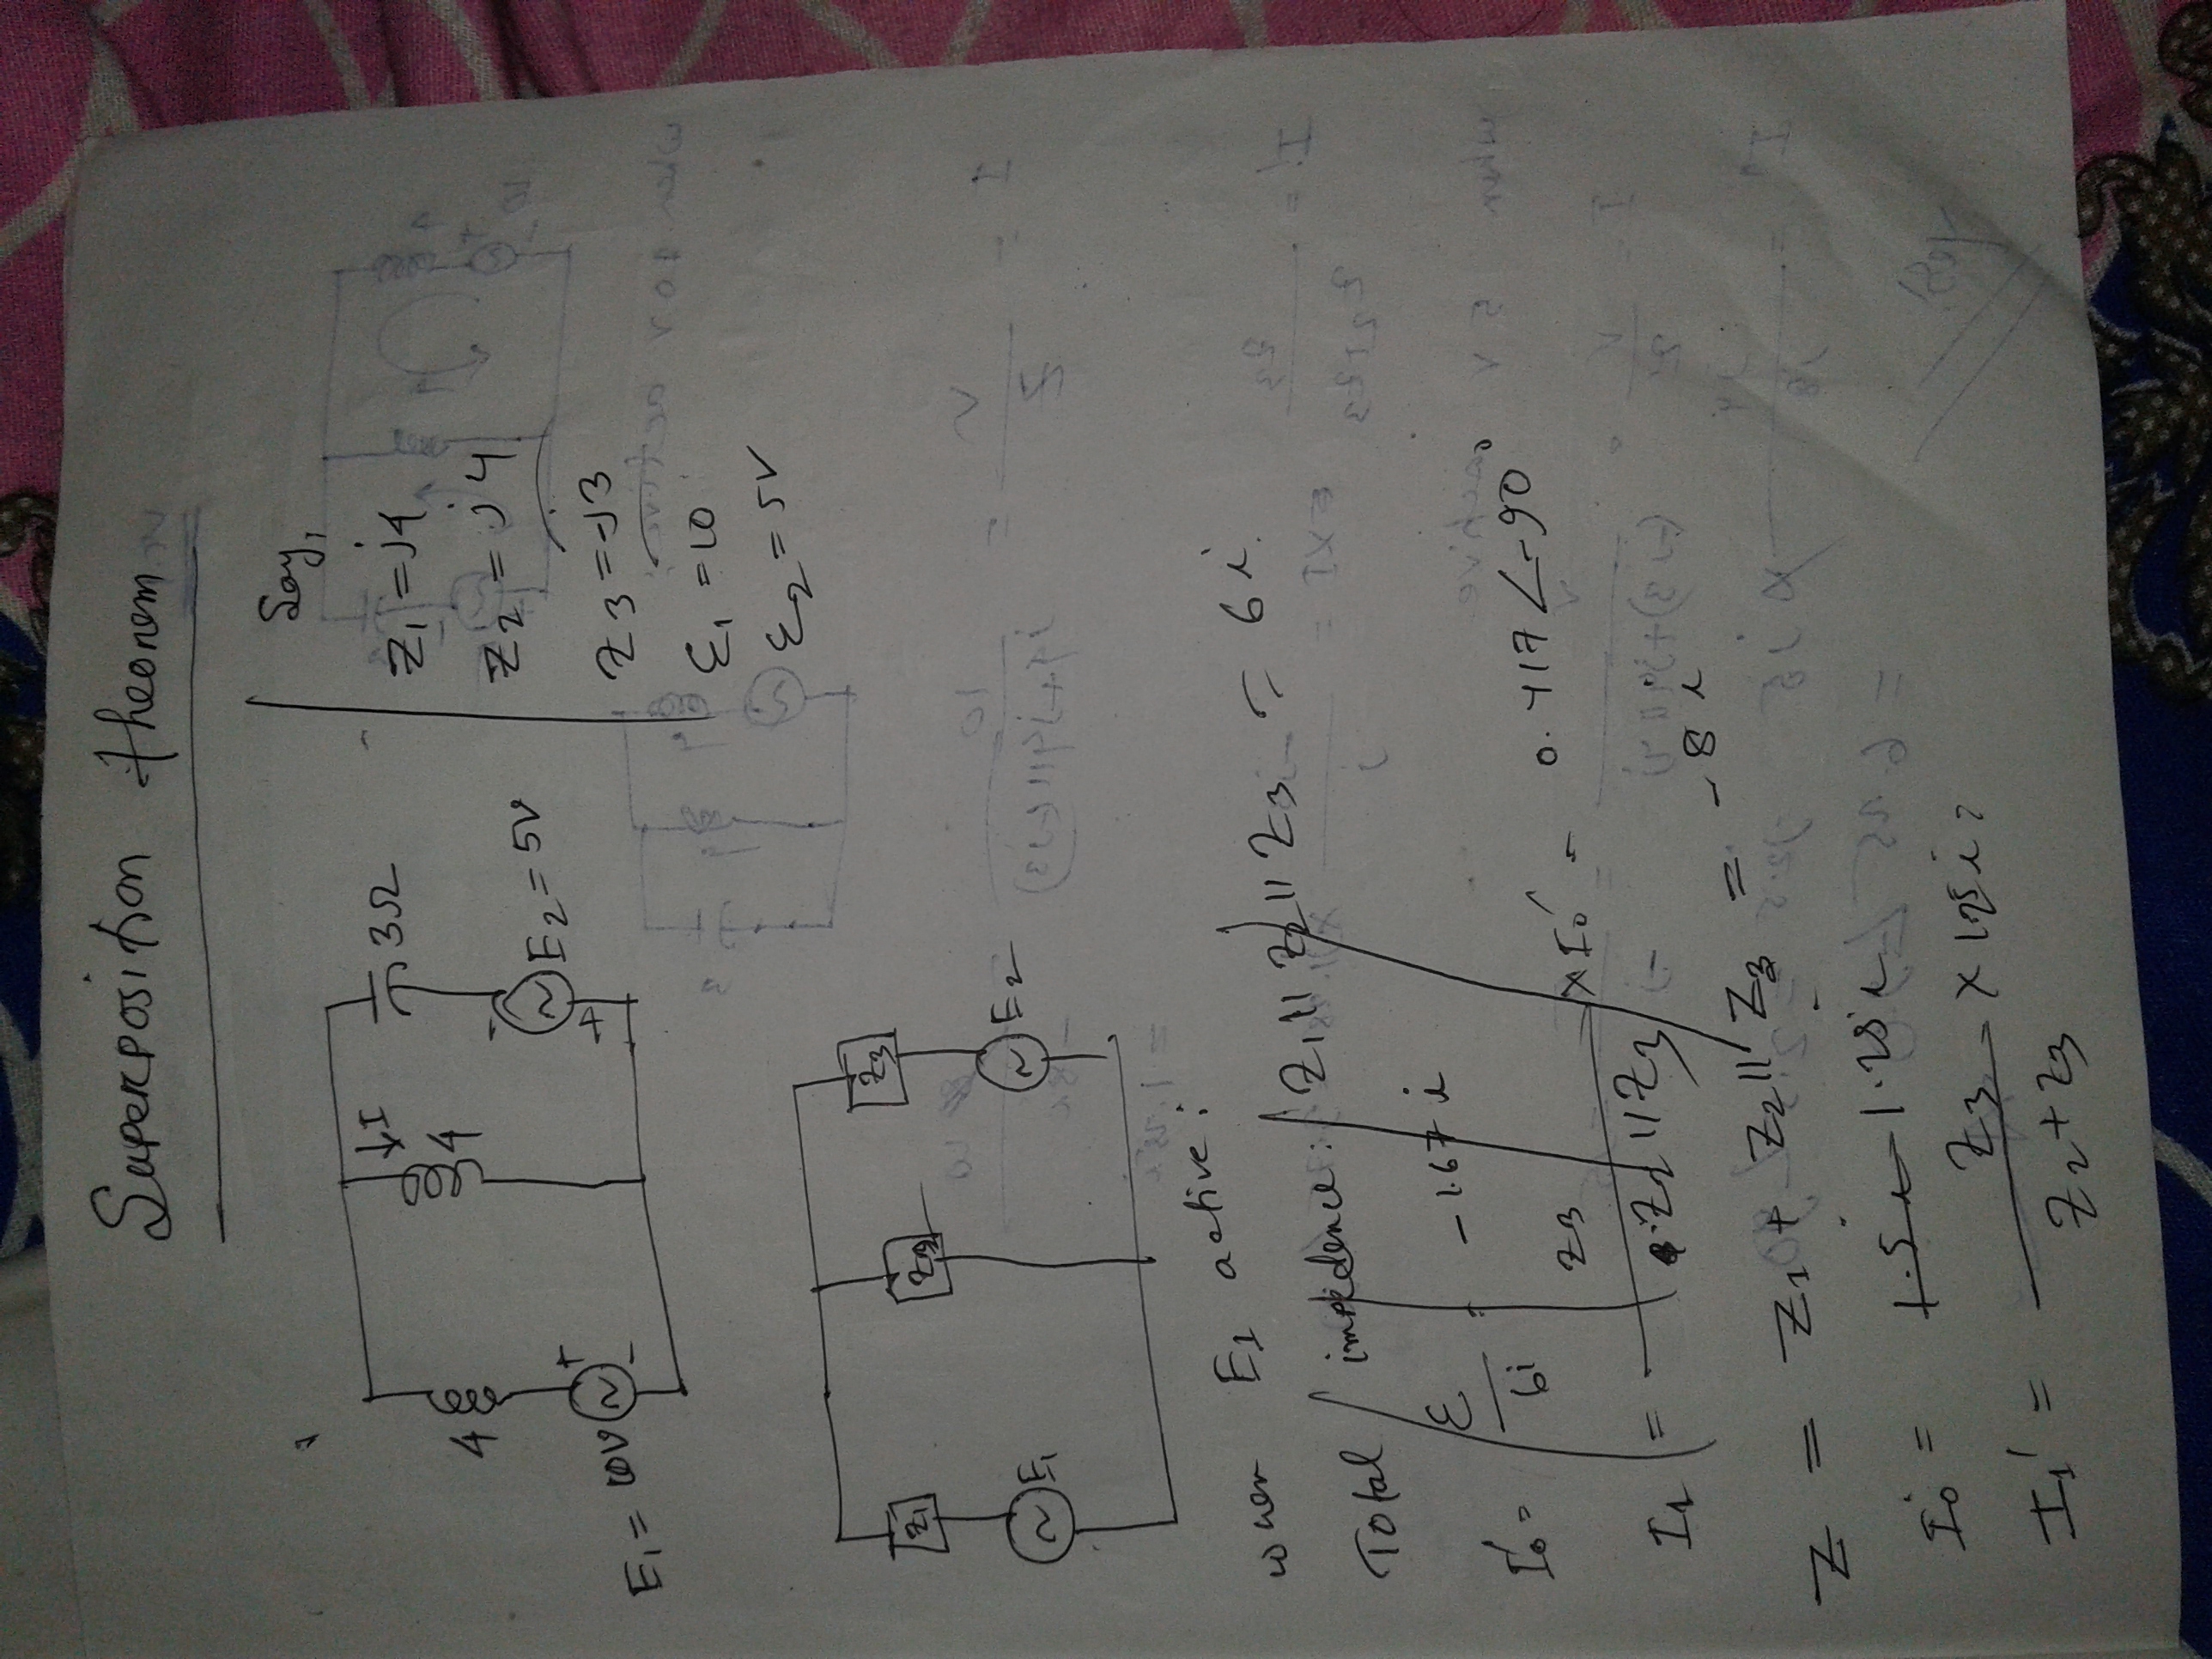 Superposition theorem
Say,
↓I
3Ω
4
4
Z₁ = j4
Z₂ = j4
- +
E₂ = 5V
Z₃ = -j3
+ -
E₁ = 10V
ε₁ = 10
ε₂ = 5V
Z₁
Z₂
Z₃
E₁
E₂
when E₁ active:
Total impedence: Z₁ || Z₂ || Z₃ = 6i
I₀' = ε / 6i = -1.67i
I₁ = Z₃ / Z₂ || Z₃ × I₀' = 0.417 ∠-90°
Z = Z₁ + Z₂ || Z₃ = -8i
I₀ = 1.25i
I₁' = Z₃ / Z₂+Z₃ × 1.25i =